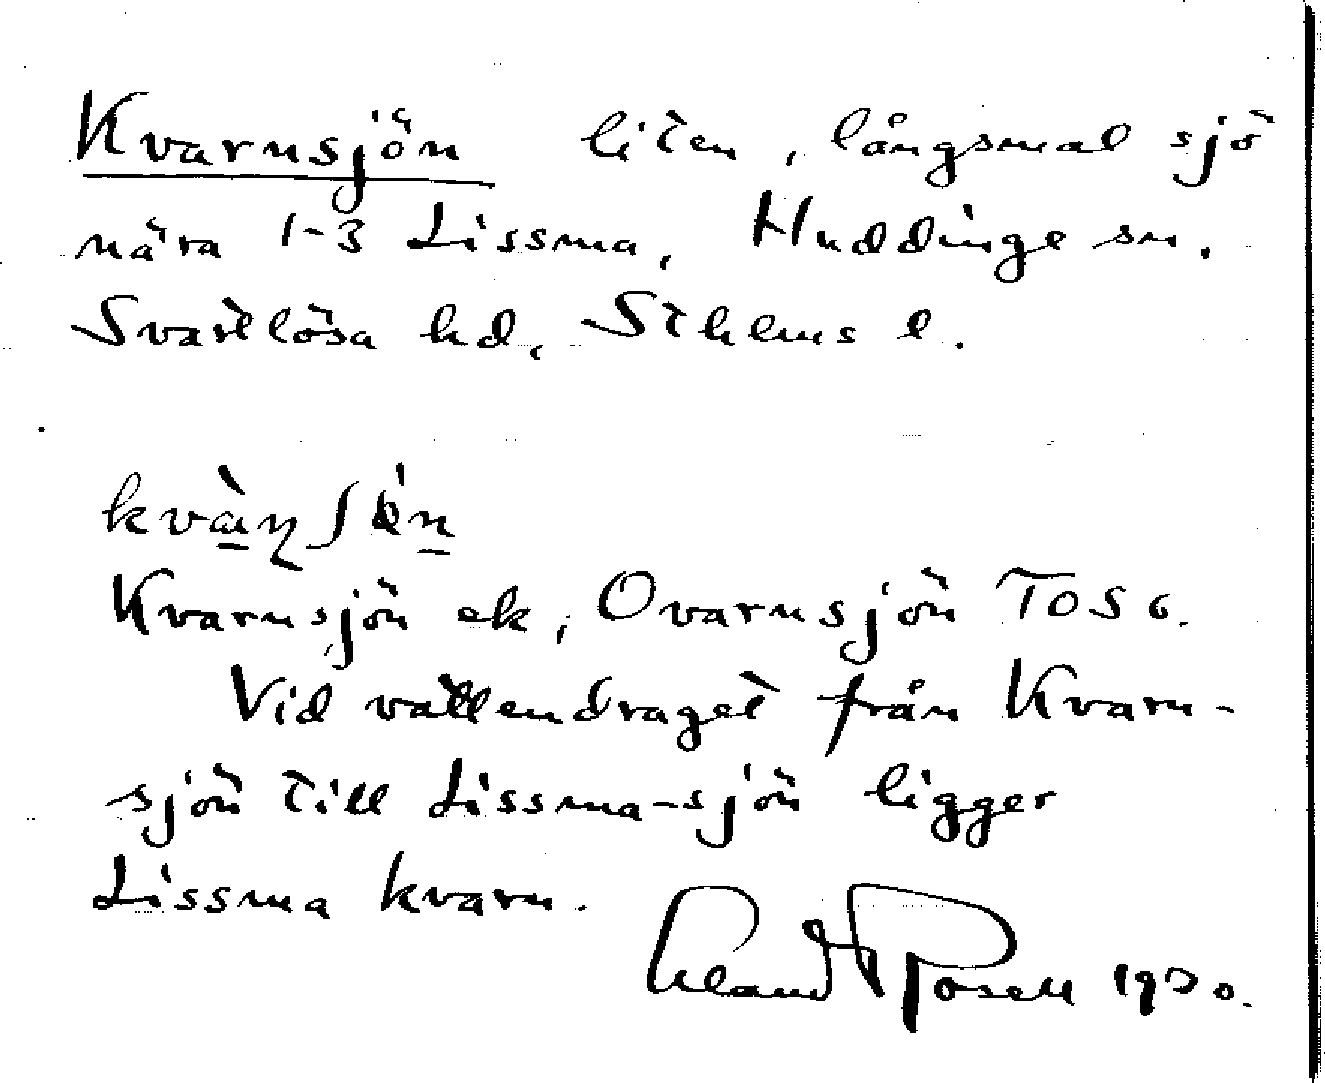 Kvarnsjön liten, långsmal sjö
nära 1-3 Lissma, Huddinge sn.
Svartlösa hd, Sthlms l.
Kvarnsjön ek, Qvarnsjön TOS 6.
Vid vattendraget från Kvarn-
sjön till Lissma-sjön ligger
Lissma kvarn.
1930.